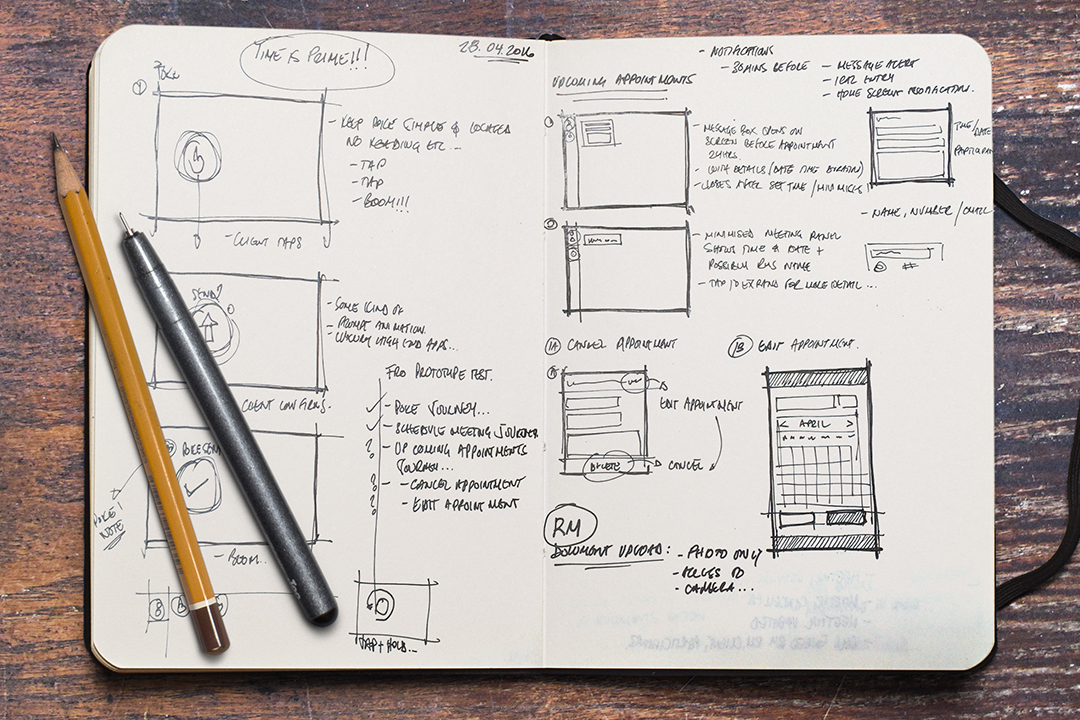 28.04.2016
TIME IS PRIME!!!
POKE
1
- KEEP POKE SIMPLE & LOCATED
NO READING ETC...
- TAP
- TAP
- BOOM!!!
- CLIENT TAPS
SEND?
- SOME KIND OF
- PROMPT ANIMATION.
- LUXURY HIGH END APPS...
CLIENT CONFIRMS.
POKE
NOTE
- BOOM...
FRO PROTOTYPE TEST.
- POKE JOURNEY...
- SCHEDULE MEETING JOURNEY
? - UP COMING APPOINTMENTS
JOURNEY...
? - CANCEL APPOINTMENT
? - EDIT APPOINTMENT
TAP + HOLD...
- NOTIFICATIONS
- 30MINS BEFORE
- MESSAGE ALERT
- ICAL ENTRY
- HOME SCREEN NOTIFICATION.
UPCOMING APPOINTMENTS
- MESSAGE BOX OPENS ON
SCREEN BEFORE APPOINTMENT
24HRS.
- WITH DETAILS (DATE TIME DURATION)
- CLOSES AFTER SET TIME / MINIMISES
TIME/DATE
- NAME, NUMBER / EMAIL
- MINIMISED MEETING PANEL
SHOWS TIME & DATE +
POSSIBLE RMS NAME
- TAP TO EXPAND FOR MORE DETAIL...
1A CANCEL APPOINTMENT
1B EDIT APPOINTMENT.
EDIT APPOINTMENT
DELETE
CANCEL
< APRIL >
RM
DOCUMENT UPLOAD:
- PHOTO ONLY
- ACCESS TO
- CAMERA...